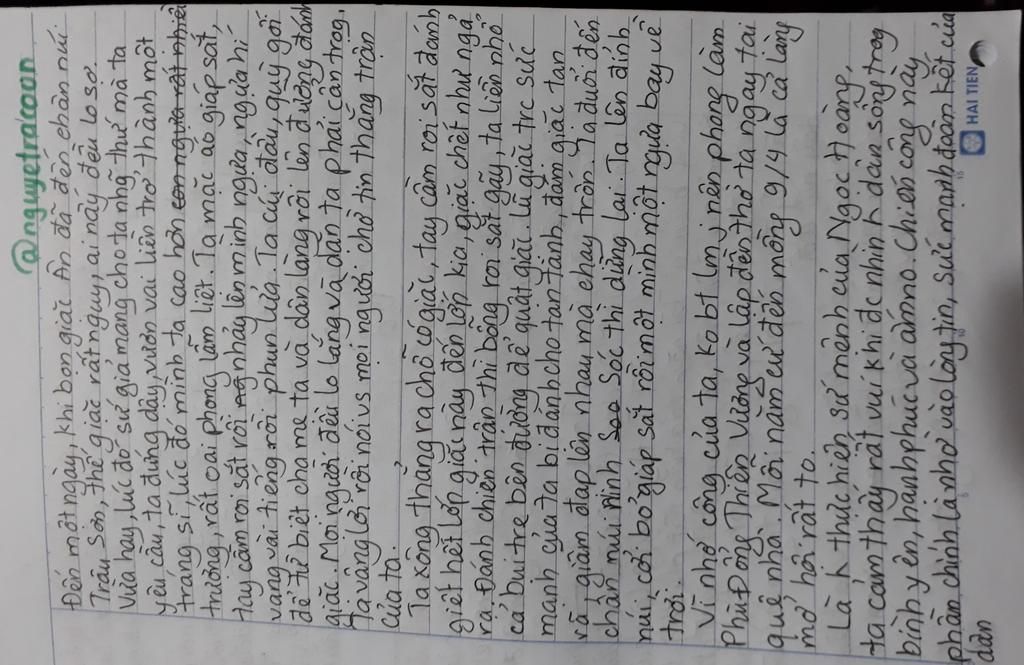 @nguyetraroan
Đến một ngày, khi bọn giặc Ân đã đến chân núi
Trâu Sơn, thế giặc rất nguy, ai nấy đều lo sợ.
Vừa hay, lúc đó sứ giả mang cho ta những thứ mà ta
yêu cầu, ta đứng dậy, vươn vai liền trở thành một
tráng sĩ, lúc đó mình ta cao hơn con ngựa rất nhiều
trượng, rất oai phong lẫm liệt. Ta mặc áo giáp sắt,
tay cầm roi sắt rồi nhảy lên mình ngựa, ngựa hí
vang vài tiếng rồi phun lửa. Ta cúi đầu, quỳ gối
để từ biệt cha mẹ ta và dân làng rồi lên đường đánh
giặc. Mọi người đều lo lắng và dặn ta phải cẩn trọg,
Ta vâng lời rồi nói vs mọi người chờ tin thắng trận
của ta.
Ta xông thẳng ra chỗ có giặc, tay cầm roi sắt đánh
giết hết lớp giặc này đến lớp kia, giặc chết như ngả
rạ. Đánh chiến trận thì bỗng roi sắt gãy, ta liền nhổ
cả bụi tre bên đường để quật giặc. Lũ giặc trc sức
mạnh của ta bị đánh cho tan tành, đám giặc tan
rã giẫm đạp lên nhau mà chạy trốn. Ta đuổi đến
chân núi Ninh So Sóc thì dừng lại. Ta lên đỉnh
núi, cởi bỏ giáp sắt rồi một mình một ngựa bay về
trời.
Vì nhớ công của ta, ko bt lm j nên phong làm
Phù Đổng Thiên Vương và lập đền thờ ta ngay tại
quê nhà. Mỗi năm cứ đến mồng 9/4 là cả làng
mở hội rất to.
Là k thực hiện sứ mệnh của Ngọc Hoàng,
ta cảm thấy rất vui khi đc nhìn n dân sống trog
bình yên, hạnh phúc và ấm no. Chiến công này
phần chính là nhờ vào lòng tin, sức mạnh đoàn kết của
dân
HẢI TIẾN